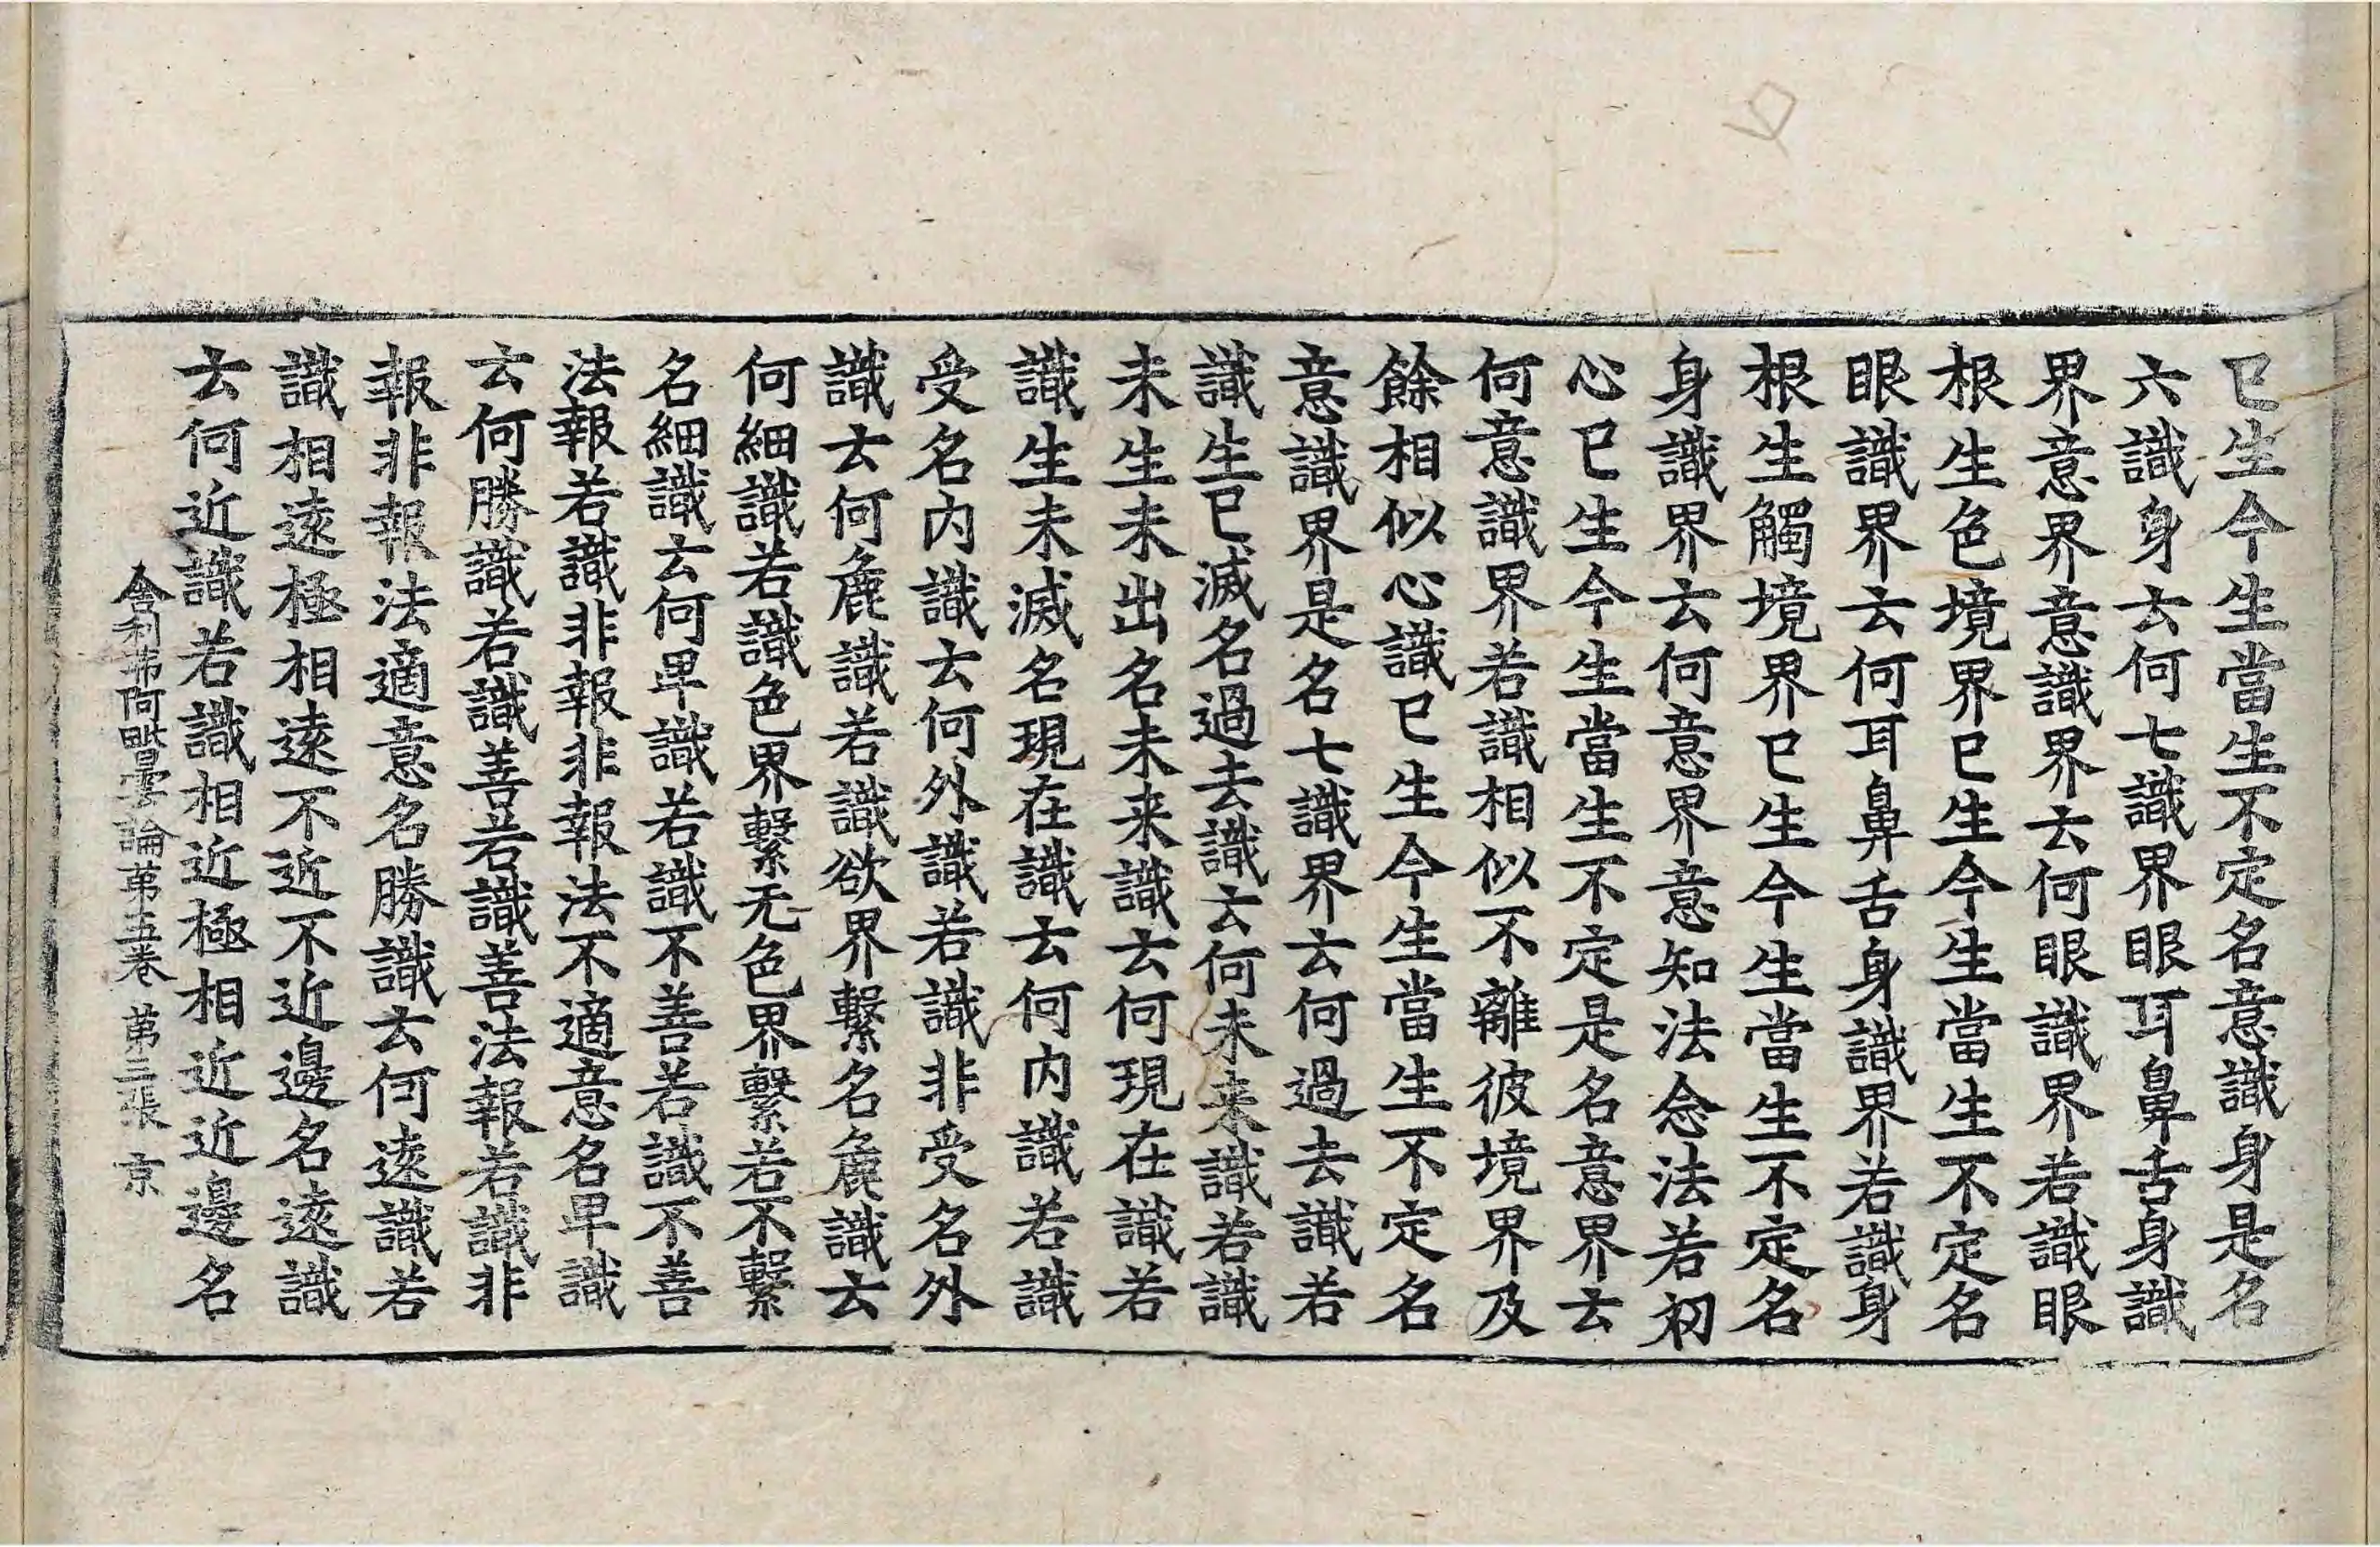 已生今生當生不定名意識身是名
六識身云何七識界眼耳鼻舌身識
界意界意識界云何眼識界若識眼
根生色境界已生今生當生不定名
眼識界云何耳鼻舌身識界若識身
根生觸境界已生今生當生不定名
身識界云何意界意知法念法若初
心已生今生當生不定是名意界云
何意識界若識相似不離彼境界及
餘相似心識已生今生當生不定名
意識界是名七識界云何過去識若
識生已滅名過去識云何未来識若識
未生未出名未来識云何現在識若
識生未滅名現在識云何内識若識
受名内識云何外識若識非受名外
識云何麁識若識欲界繫名麁識云
何細識若識色界繫无色界繫若不繫
名細識云何卑識若識不善若識不善
法報若識非報非報法不適意名卑識
云何勝識若識善若識善法報若識非
報非報法適意名勝識云何遠識若
識相遠極相遠不近不近邊名遠識
云何近識若識相近極相近近邊名
舍利弗阿毗曇論第五卷 第三張 京